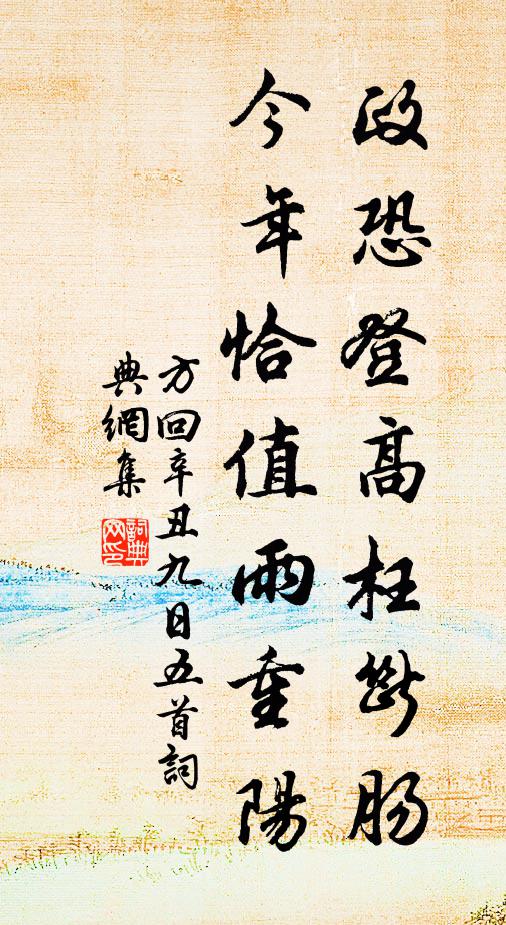 政恐登高枉斷腸
今年恰值雨重陽
方回辛丑九日五首詞
典網集
詞典网印